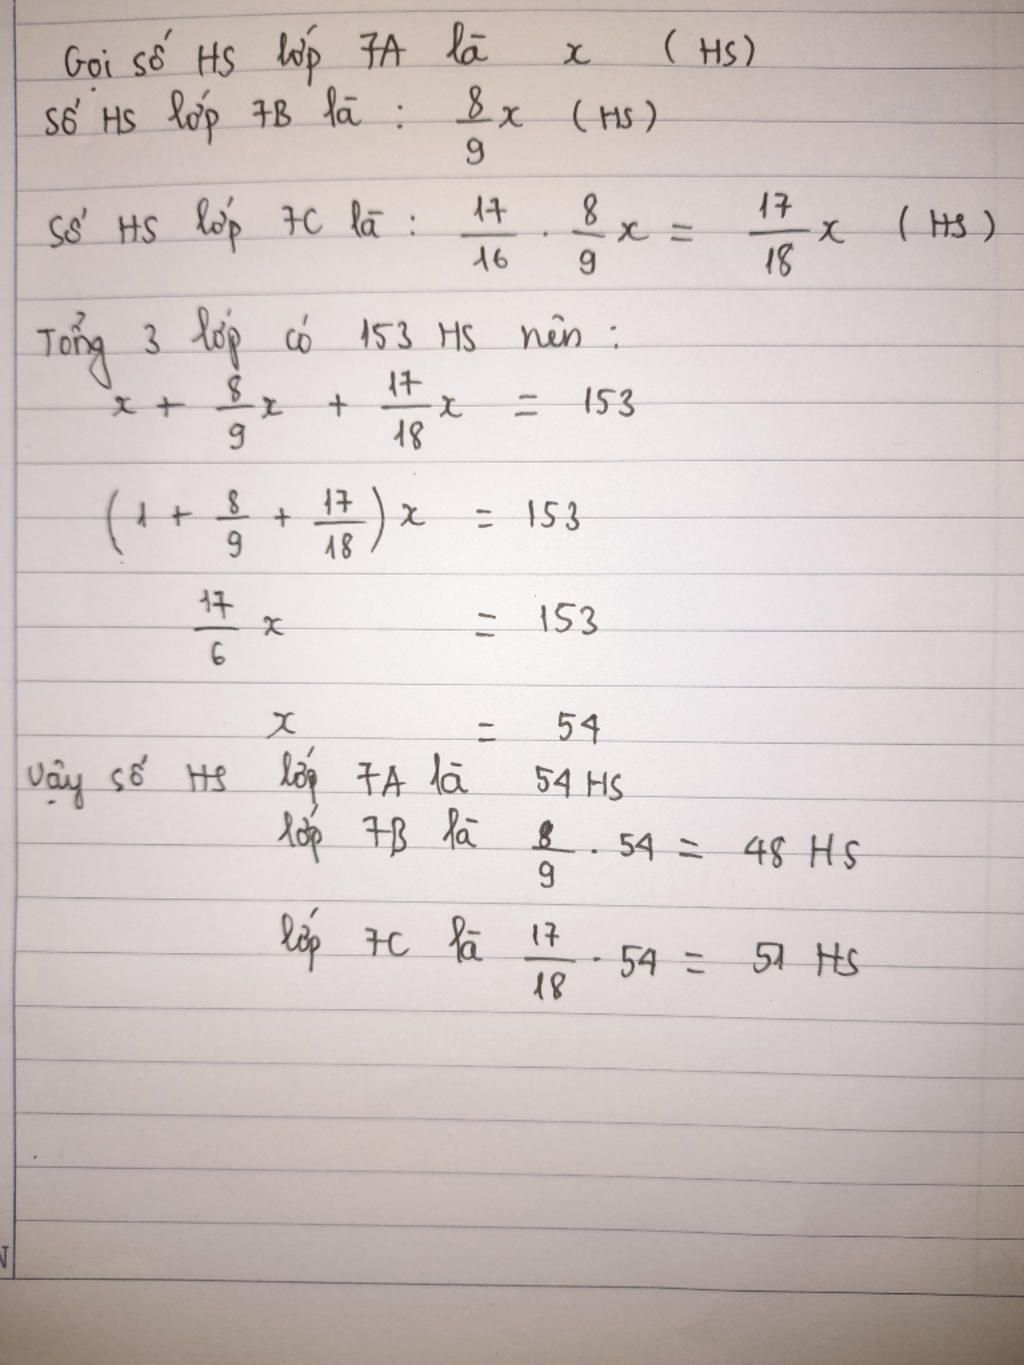 Gọi số HS lớp 7A là x (HS)
Số HS lớp 7B là : 8/9 x (HS)
Số HS lớp 7C là : 17/16 . 8/9 x = 17/18 x (HS)
Tổng 3 lớp có 153 HS nên :
x + 8/9 x + 17/18 x = 153
(1 + 8/9 + 17/18) x = 153
17/6 x = 153
x = 54
Vậy số HS lớp 7A là 54 HS
lớp 7B là 8/9 . 54 = 48 HS
lớp 7C là 17/18 . 54 = 51 HS